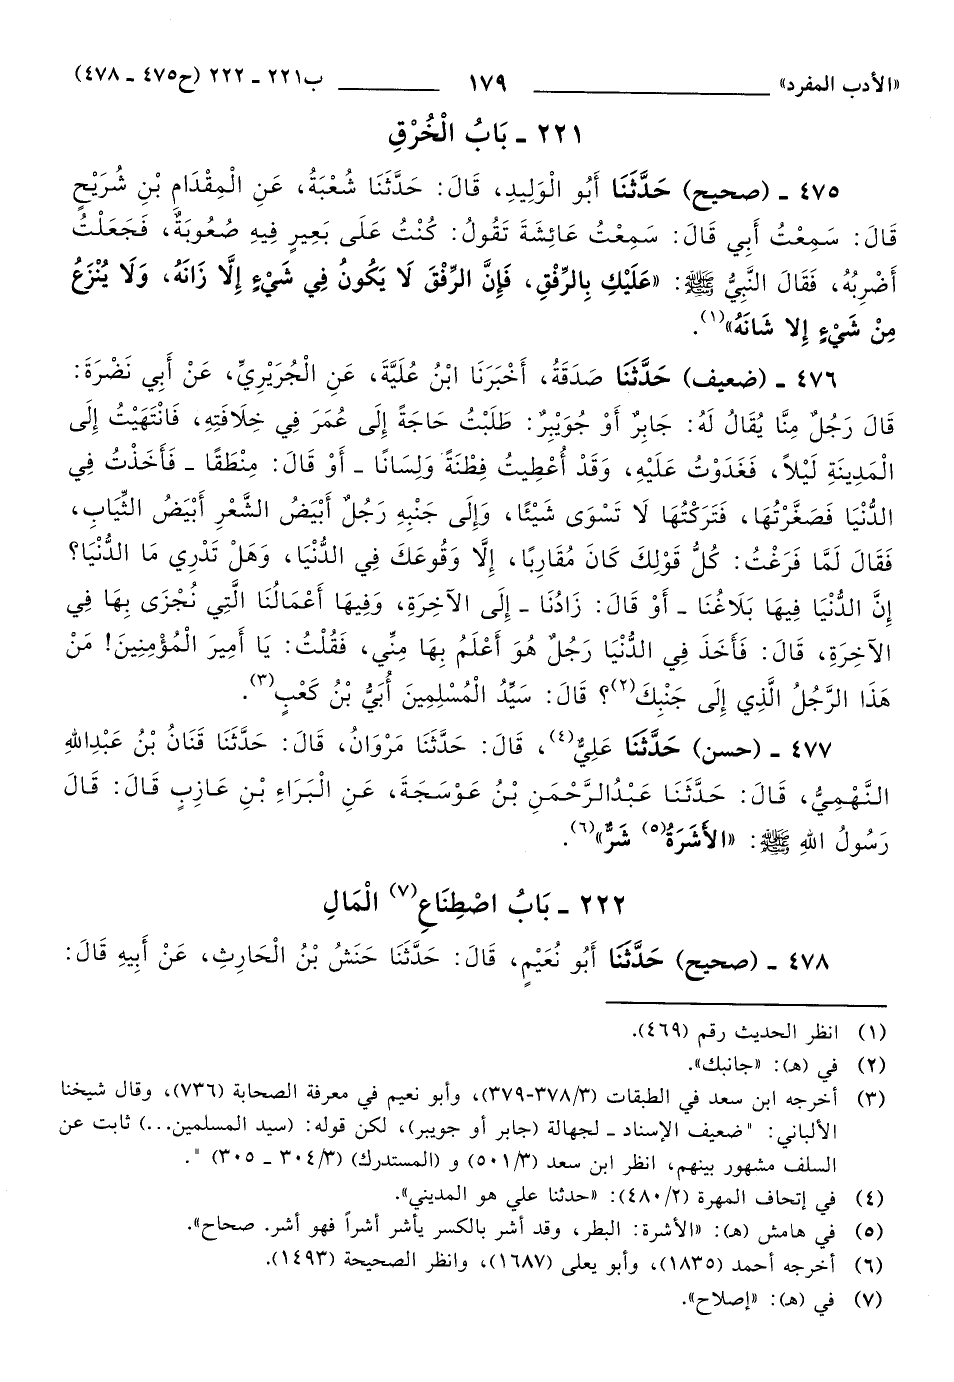 «الأدب المفرد» ١٧٩ ب٢٢١ ـ ٢٢٢ (ح٤٧٥ ـ ٤٧٨)
٢٢١ ـ بَابُ الْخُرْقِ
٤٧٥ ـ (صحيح) حَدَّثَنَا أَبُو الْوَلِيدِ، قَالَ: حَدَّثَنَا شُعْبَةُ، عَنِ الْمِقْدَامِ بْنِ شُرَيْحٍ
قَالَ: سَمِعْتُ أَبِي قَالَ: سَمِعْتُ عَائِشَةَ تَقُولُ: كُنْتُ عَلَى بَعِيرٍ فِيهِ صُعُوبَةٌ، فَجَعَلْتُ
أَضْرِبُهُ، فَقَالَ النَّبِيُّ ﷺ: «عَلَيْكِ بِالرِّفْقِ، فَإِنَّ الرِّفْقَ لَا يَكُونُ فِي شَيْءٍ إِلَّا زَانَهُ، وَلَا يُنْزَعُ
مِنْ شَيْءٍ إِلا شَانَهُ»(١).
٤٧٦ ـ (ضعيف) حَدَّثَنَا صَدَقَةُ، أَخْبَرَنَا ابْنُ عُلَيَّةَ، عَنِ الْجُرَيْرِيِّ، عَنْ أَبِي نَضْرَةَ:
قَالَ رَجُلٌ مِنَّا يُقَالُ لَهُ: جَابِرٌ أَوْ جُوَيْبِرٌ: طَلَبْتُ حَاجَةً إِلَى عُمَرَ فِي خِلَافَتِهِ، فَانْتَهَيْتُ إِلَى
الْمَدِينَةِ لَيْلاً، فَغَدَوْتُ عَلَيْهِ، وَقَدْ أُعْطِيتُ فِطْنَةً وَلِسَانًا ـ أَوْ قَالَ: مِنْطَقًا ـ فَأَخَذْتُ فِي
الدُّنْيَا فَصَغَّرْتُهَا، فَتَرَكْتُهَا لَا تَسْوَى شَيْئًا، وَإِلَى جَنْبِهِ رَجُلٌ أَبْيَضُ الشَّعْرِ أَبْيَضُ الثِّيَابِ،
فَقَالَ لَمَّا فَرَغْتُ: كُلُّ قَوْلِكَ كَانَ مُقَارِبًا، إِلَّا وَقُوعَكَ فِي الدُّنْيَا، وَهَلْ تَدْرِي مَا الدُّنْيَا؟
إِنَّ الدُّنْيَا فِيهَا بَلَاغُنَا ـ أَوْ قَالَ: زَادُنَا ـ إِلَى الآخِرَةِ، وَفِيهَا أَعْمَالُنَا الَّتِي نُجْزَى بِهَا فِي
الآخِرَةِ، قَالَ: فَأَخَذَ فِي الدُّنْيَا رَجُلٌ هُوَ أَعْلَمُ بِهَا مِنِّي، فَقُلْتُ: يَا أَمِيرَ الْمُؤْمِنِينَ! مَنْ
هَذَا الرَّجُلُ الَّذِي إِلَى جَنْبِكَ(٢)؟ قَالَ: سَيِّدُ الْمُسْلِمِينَ أُبَيُّ بْنُ كَعْبٍ(٣).
٤٧٧ ـ (حسن) حَدَّثَنَا عَلِيٌّ(٤)، قَالَ: حَدَّثَنَا مَرْوَانُ، قَالَ: حَدَّثَنَا قَنَانُ بْنُ عَبْدِاللهِ
النَّهْمِيُّ، قَالَ: حَدَّثَنَا عَبْدُالرَّحْمَنِ بْنُ عَوْسَجَةَ، عَنِ الْبَرَاءِ بْنِ عَازِبٍ قَالَ: قَالَ
رَسُولُ اللهِ ﷺ: «الأَشَرَةُ(٥) شَرٌّ»(٦).
٢٢٢ ـ بَابُ اصْطِنَاعِ(٧) الْمَالِ
٤٧٨ ـ (صحيح) حَدَّثَنَا أَبُو نُعَيْمٍ، قَالَ: حَدَّثَنَا حَنَشُ بْنُ الْحَارِثِ، عَنْ أَبِيهِ قَالَ:
(١) انظر الحديث رقم (٤٦٩).
(٢) في (هـ): «جانبك».
(٣) أخرجه ابن سعد في الطبقات (٣/٣٧٨-٣٧٩)، وأبو نعيم في معرفة الصحابة (٧٣٦)، وقال شيخنا
الألباني: "ضعيف الإسناد ـ لجهالة (جابر أو جويبر)، لكن قوله: (سيد المسلمين...) ثابت عن
السلف مشهور بينهم، انظر ابن سعد (٣/٥٠١) و (المستدرك) (٣/٣٠٤ ـ ٣٠٥) ".
(٤) في إتحاف المهرة (٢/٤٨٠): «حدثنا علي هو المديني».
(٥) في هامش (هـ): «الأشرة: البطر، وقد أشر بالكسر يأشر أشراً فهو أشر. صحاح».
(٦) أخرجه أحمد (١٨٣٥)، وأبو يعلى (١٦٨٧)، وانظر الصحيحة (١٤٩٣).
(٧) في (هـ): «إصلاح».